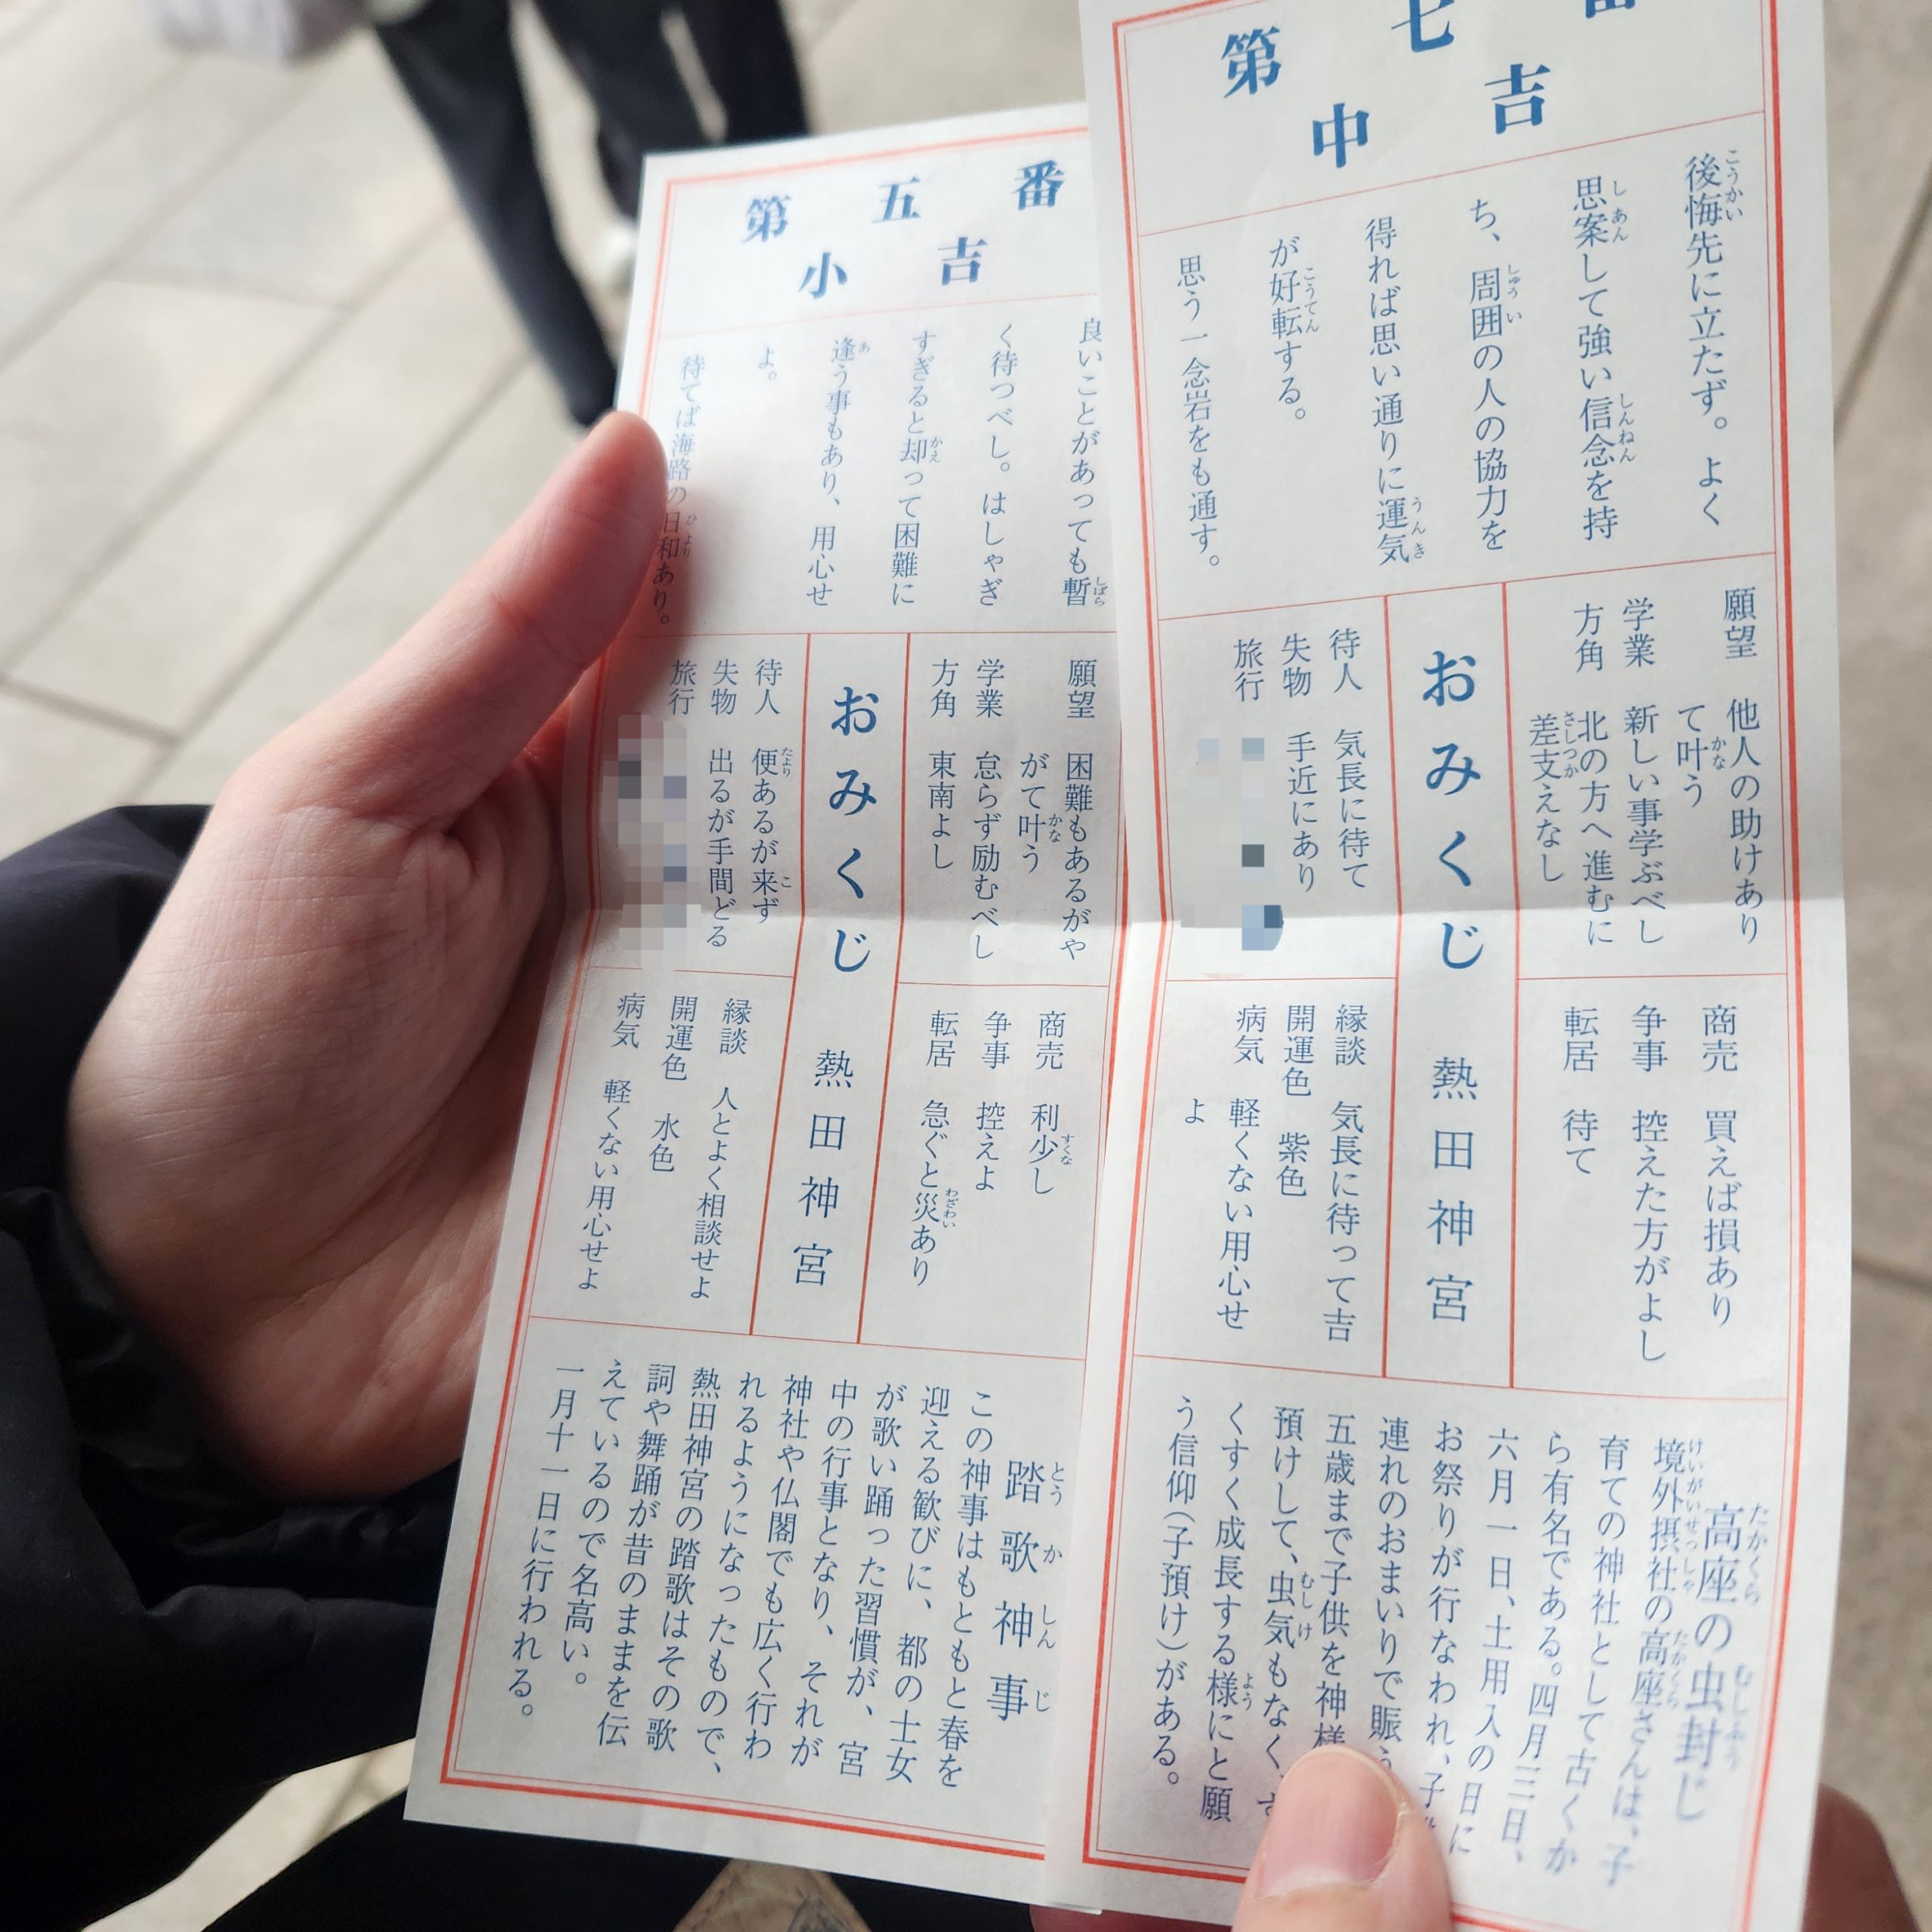 第七番
中吉
後悔先に立たず。よく
思案して強い信念を持
ち、周囲の人の協力を
得れば思い通りに運気
が好転する。
思う一念岩をも通す。
願望 他人の助けあり
て叶う
学業 新しい事学ぶべし
方角 北の方へ進むに
差支えなし
おみくじ 熱田神宮
待人 気長に待て
失物 手近にあり
旅行
商売 買えば損あり
争事 控えた方がよし
転居 待て
縁談 気長に待って吉
開運色 紫色
病気 軽くない用心せ
よ
高座の虫封じ
境外摂社の高座さんは、子
育ての神社として古くか
ら有名である。四月三日、
六月一日、土用入の日に
お祭りが行なわれ、子
連れのおまいりで賑う
五歳まで子供を神様
預けして、虫気もなく、す
くすく成長する様にと願
う信仰(子預け)がある。
第五番
小吉
良いことがあっても暫
く待つべし。はしゃぎ
すぎると却って困難に
逢う事もあり、用心せ
よ。
待てば海路の日和あり。
願望 困難もあるがや
がて叶う
学業 怠らず励むべし
方角 東南よし
おみくじ 熱田神宮
待人 便あるが来ず
失物 出るが手間どる
旅行
商売 利少し
争事 控えよ
転居 急ぐと災あり
縁談 人とよく相談せよ
開運色 水色
病気 軽くない用心せよ
踏歌神事
この神事はもともと春を
迎える歓びに、都の士女
が歌い踊った習慣が、宮
中の行事となり、それが
神社や仏閣でも広く行わ
れるようになったもので、
熱田神宮の踏歌はその歌
詞や舞踊が昔のままを伝
えているので名高い。
一月十一日に行われる。